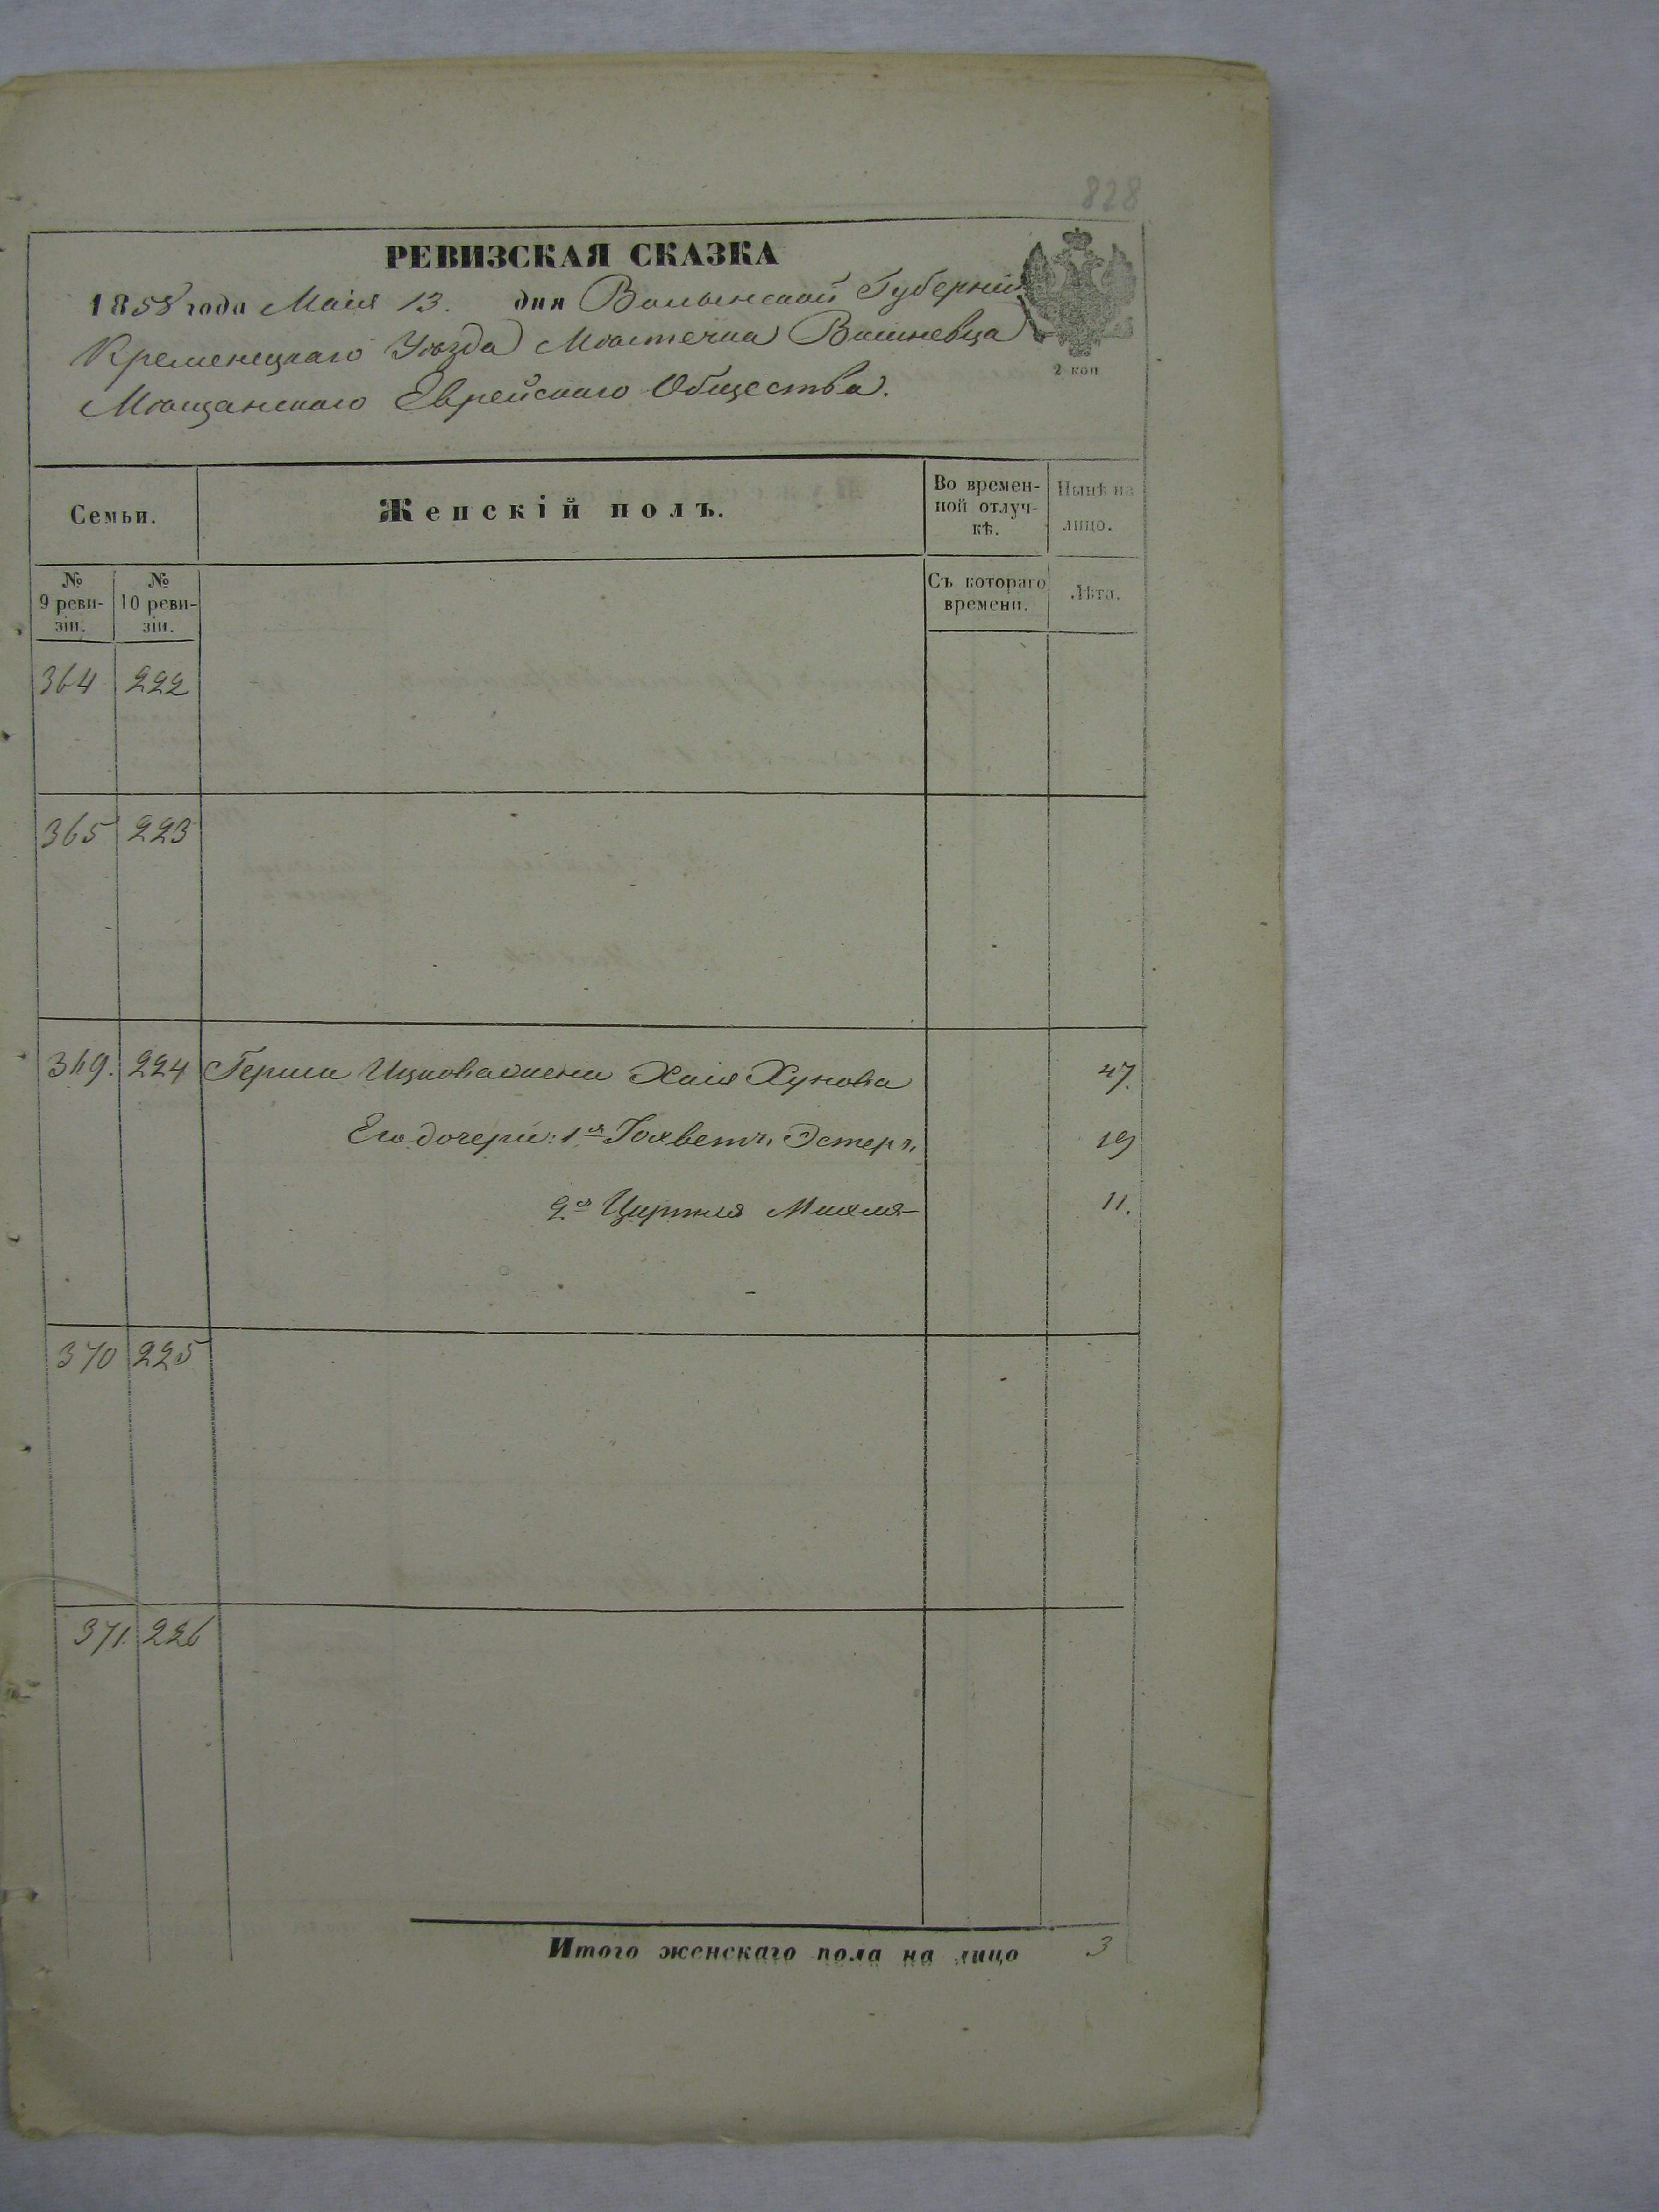 828
РЕВИЗСКАЯ СКАЗКА
1858 года Маія 13. дня Волынской Губерніи
Кременецкаго Уѣзда Мѣстечка Вишневца
Мѣщанскаго Еврейскаго Общества.
2 коп
Семьи.
Женскій полъ.
Во времен-
ной отлуч-
кѣ.
Нынѣ на
лицо.
№
9 реви-
зіи.
№
10 реви-
зіи.
Съ котораго
времени.
Лѣта.
364 222
365 223
369. 224 Герша Ицковажена Хая Хунова 47.
Его дочери: 1я Эстеръ 19
2я Михля 11.
370 225
371. 226
Итого женскаго пола на лицо 3